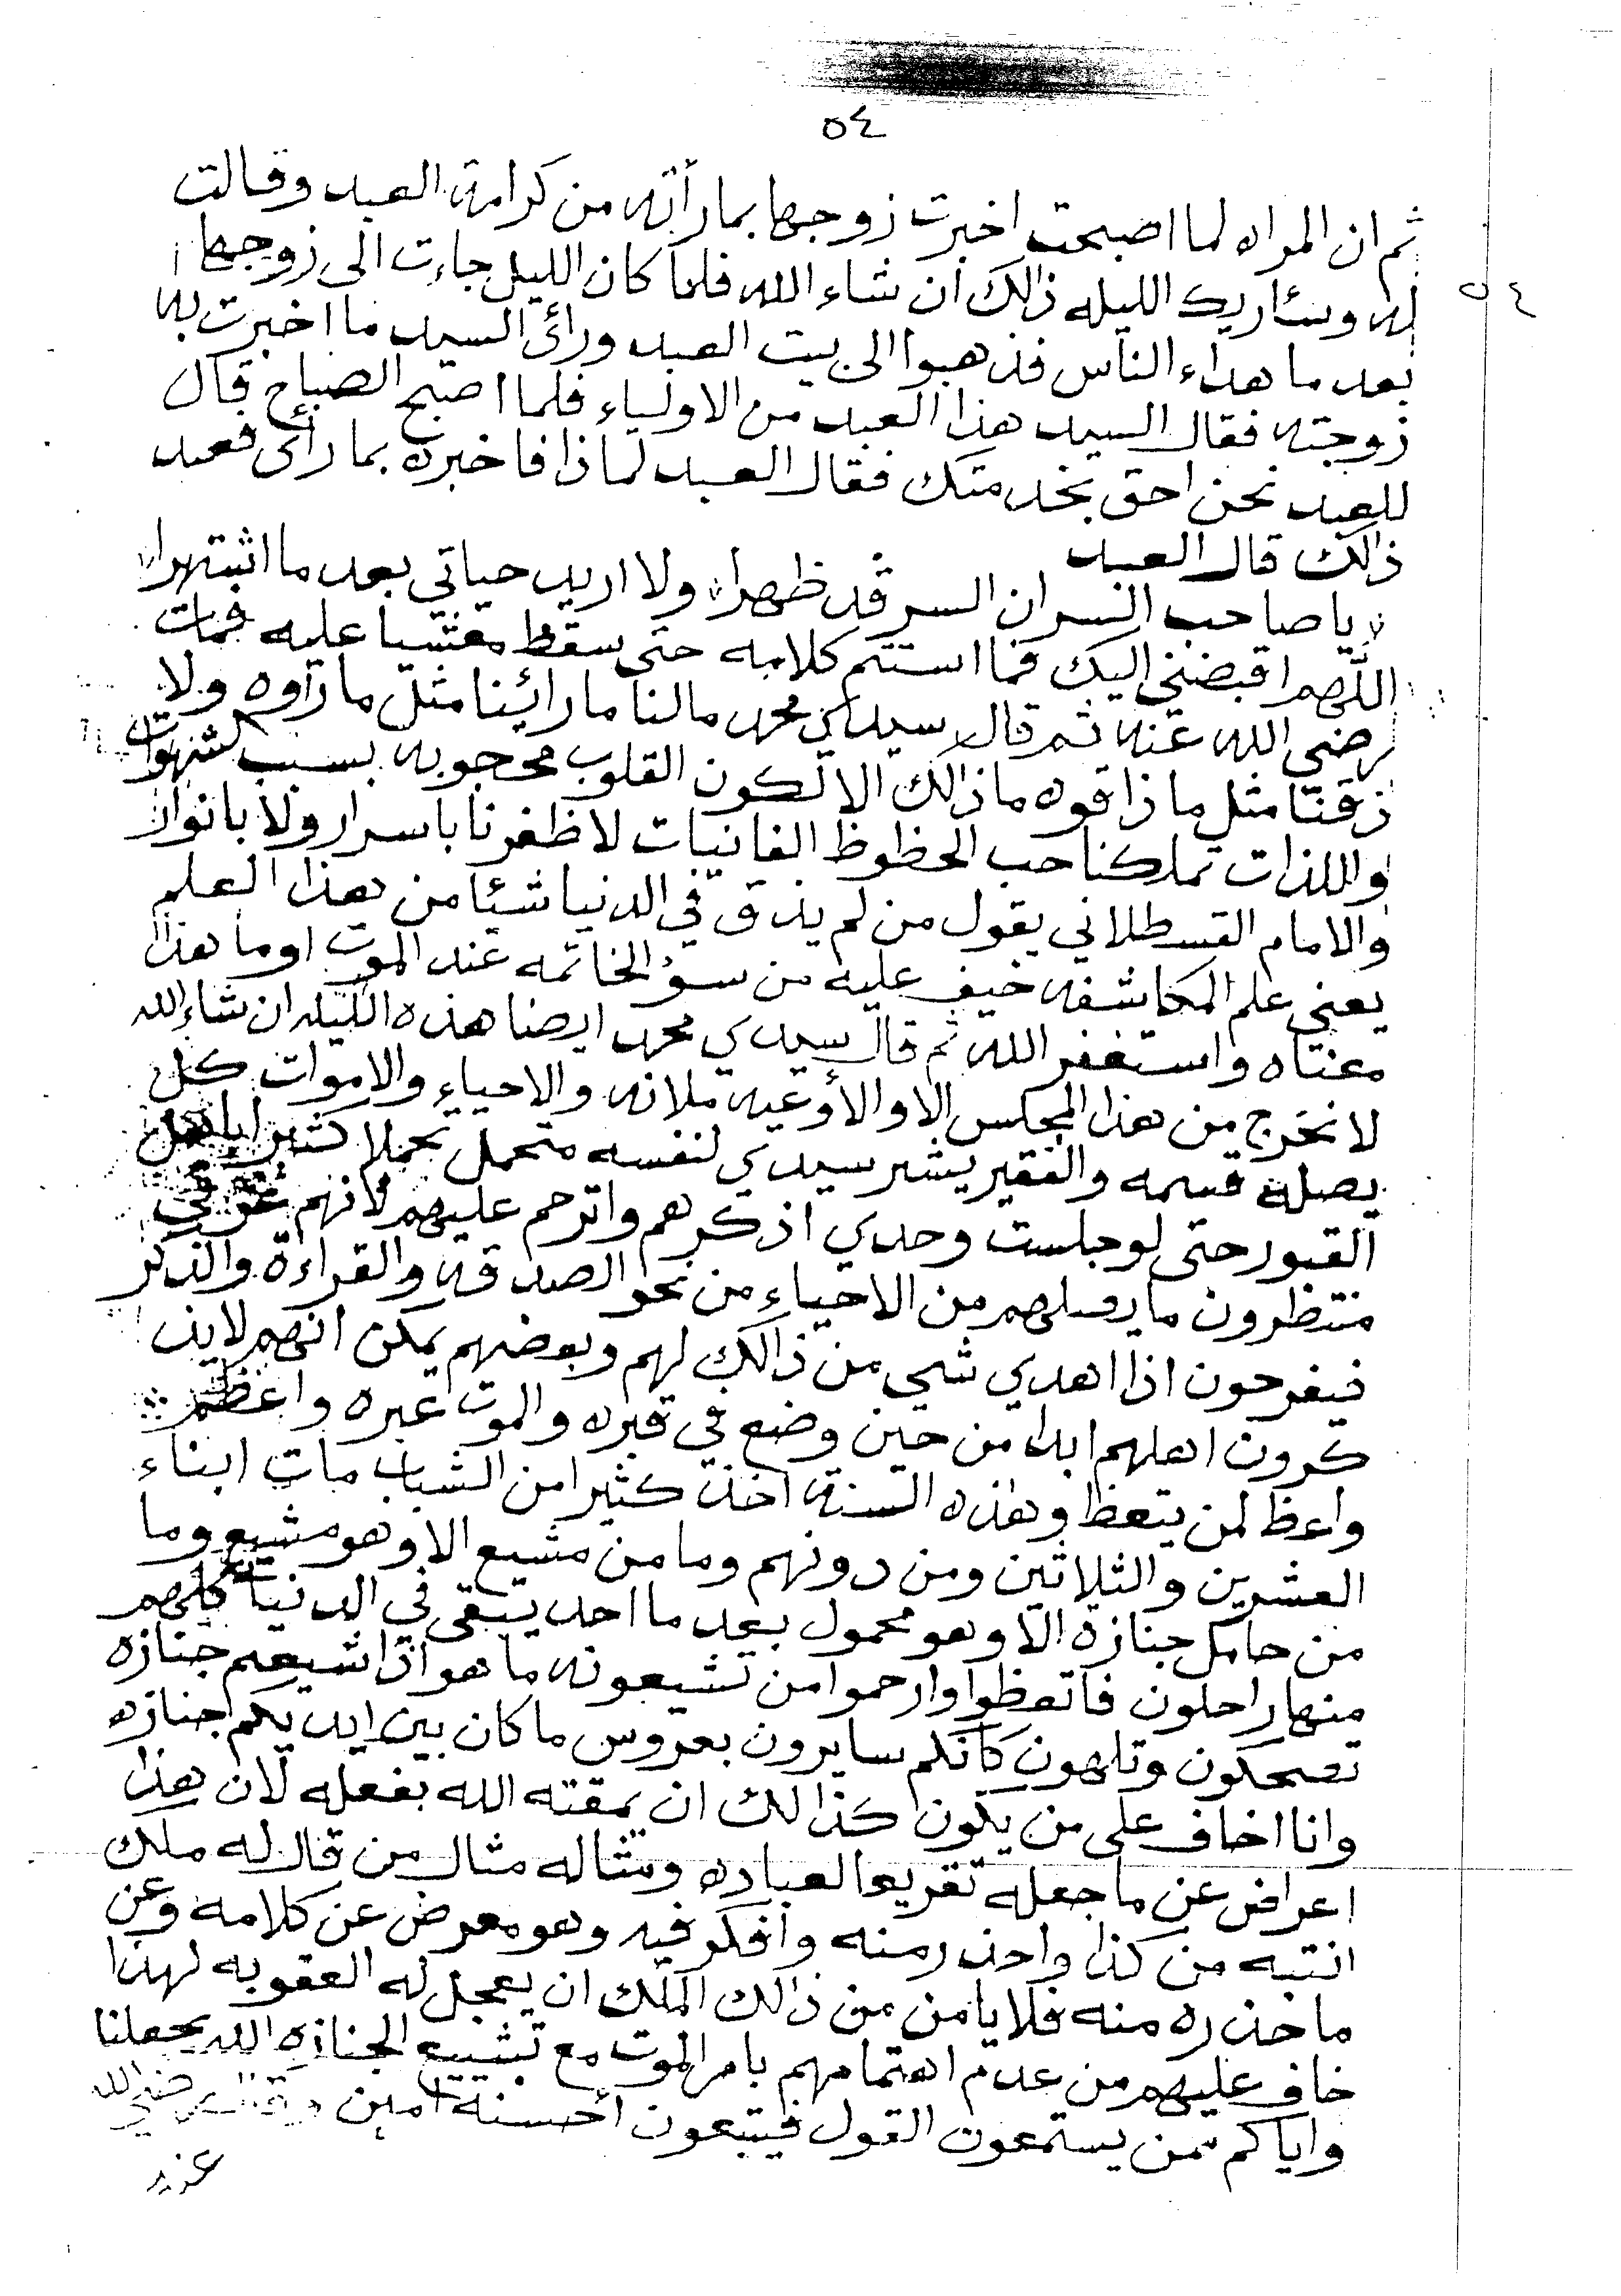 ٥٤
ثم ان المراه لما اصبحت اخبرت زوجها بما رأته من كرامة العبد وقالت
له وسأريك الليله ذالك ان شاء الله فلما كان الليل جاءت الى زوجها
٥٤
بعد ما هداء الناس فذهبوا الى بيت العبد ورائ السيد ما اخبرت به
زوجته فقال السيد هذا العبد من الاولياء فلما اصبح الصباح قال
للعبد نحن احق بخدمتك فقال العبد لماذا فاخبره بما رائ فعند
ذالك قال العبد
يا صاحب السر ان السر قد ظهرا ولا اريد حياتي بعد ما اشتهرا
اللهم اقبضني اليك فما استتم كلامه حتى سقط مغشيا عليه فمات
رضي الله عنه ثم قال سيدي محمد مالنا ما رائينا مثل ما رآوه ولا
ذقنا مثل ما ذاقوه ما ذالك الا لكون القلوب محجوبه بسبب الشهوات
واللذات تملكنا حب الحظوظ الفانيات لا ظفرنا باسرار ولا بانوار
والامام القسطلاني يقول من لم يذق في الدنيا شيئا من هذا العلم
يعني علم المكاشفه خيف عليه من سؤ الخاتمه عند الموت او ما هذا
معناه واستغفر الله ثم قال سيدي محمد ايضا هذه الليله ان شاء الله
لا نخرج من هذا المجلس الا والأوعيه ملانه والاحياء والاموات كل
يصله قسمه والفقير يشر سيدي لنفسه متحمل تحملا كثيرا باهل
القبور حتى لو جلست وحدي اذكرهم واترحم عليهم لانهم غرقى
منتظرون ما يصلهم من الاحياء من نحو الصدقه والقراءة والذكر
فيفرحون اذا اهدي شي من ذالك لهم وبعضهم يمكن انهم لا يذ
كرون اهلهم ابدا من حين وضع في قبره والموت عبره واعظم
واعظ لمن يتعظ وهذه السنة اخذ كثيرا من الشباب مات ابناء
العشرين والثلاثين ومن دونهم وما من مشيع الا وهو مشيع وما
من حامل جنازة الا وهو محمول بعد ما احد يبقى في الدنيا كلهم
منها راحلون فاتعظوا وارحموا من تشيعونه ما هو اذا شيعتم جنازه
تضحكون وتلهون كأنكم سايرون بعروس ما كان بين ايديكم جنازه
وانا اخاف على من يكون كذالك ان يمقته الله بفعله لان هذا
اعراض عن ما جعله تقريعا لعباده ومثاله مثال من قال له ملك
انتبه من كذا واحذر منه وافكر فيه وهو معرض عن كلامه وعن
ما حذره منه فلا يا من من ذالك الملك ان يعجل له العقوبه لهذا
خاف عليهم من عدم اهتمامهم بامر الموت مع تشييع الجنازه الله يجعلنا
واياكم ممن يستمعون القول فيتبعون أحسنه آمين وقال رضي الله
عنه